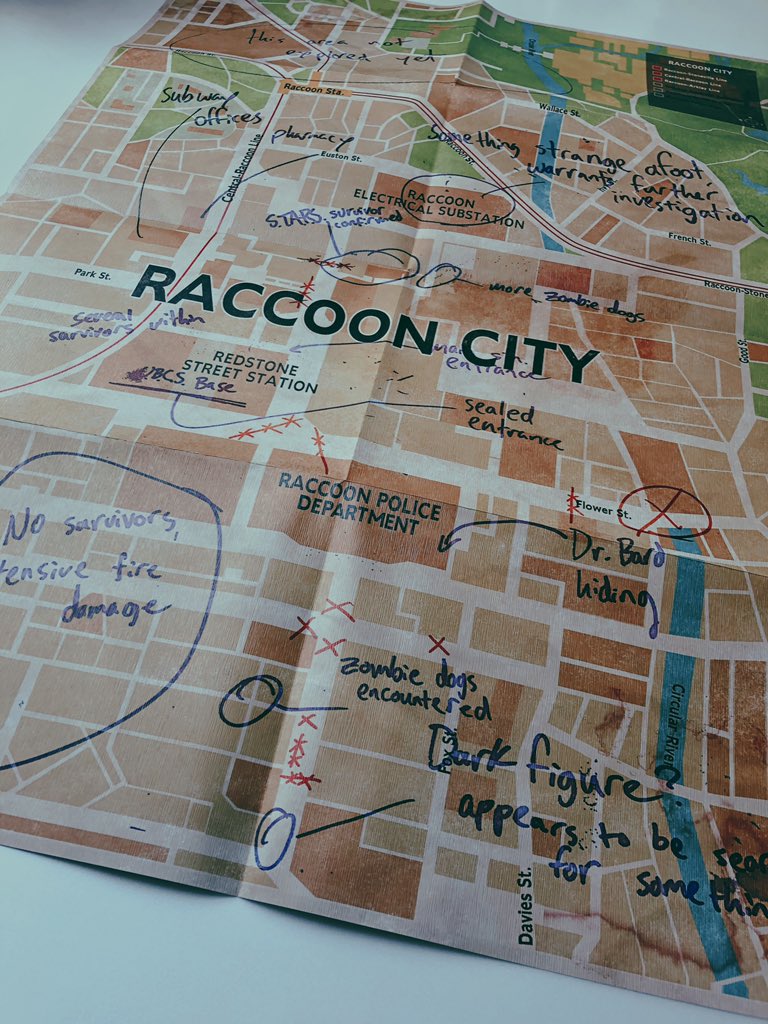 this area not
explored yet
RACCOON CITY
Raccoon-Stoneville Line
Central-Raccoon Line
Raccoon-Arklay Line
Raccoon St.
Raccoon Sta.
Subway
offices
Central-Raccoon Line
pharmacy
Euston St.
Raccoon St.
Wallace St.
Something strange afoot,
warrants further
investigation
RACCOON
ELECTRICAL SUBSTATION
S.T.A.R.S. survivor
confirmed
French St.
Raccoon-Stone
Park St.
more zombie dogs
RACCOON CITY
several
survivors within
entrance
Good St.
REDSTONE
STREET STATION
UBCS Base
sealed
entrance
RACCOON POLICE
DEPARTMENT
Flower St.
Dr. Bard
hiding
No survivors,
tensive fire
damage
zombie dogs
encountered
Fox St.
Circular River
Dark figure?
appears to be sear
for somethin
Davies St.